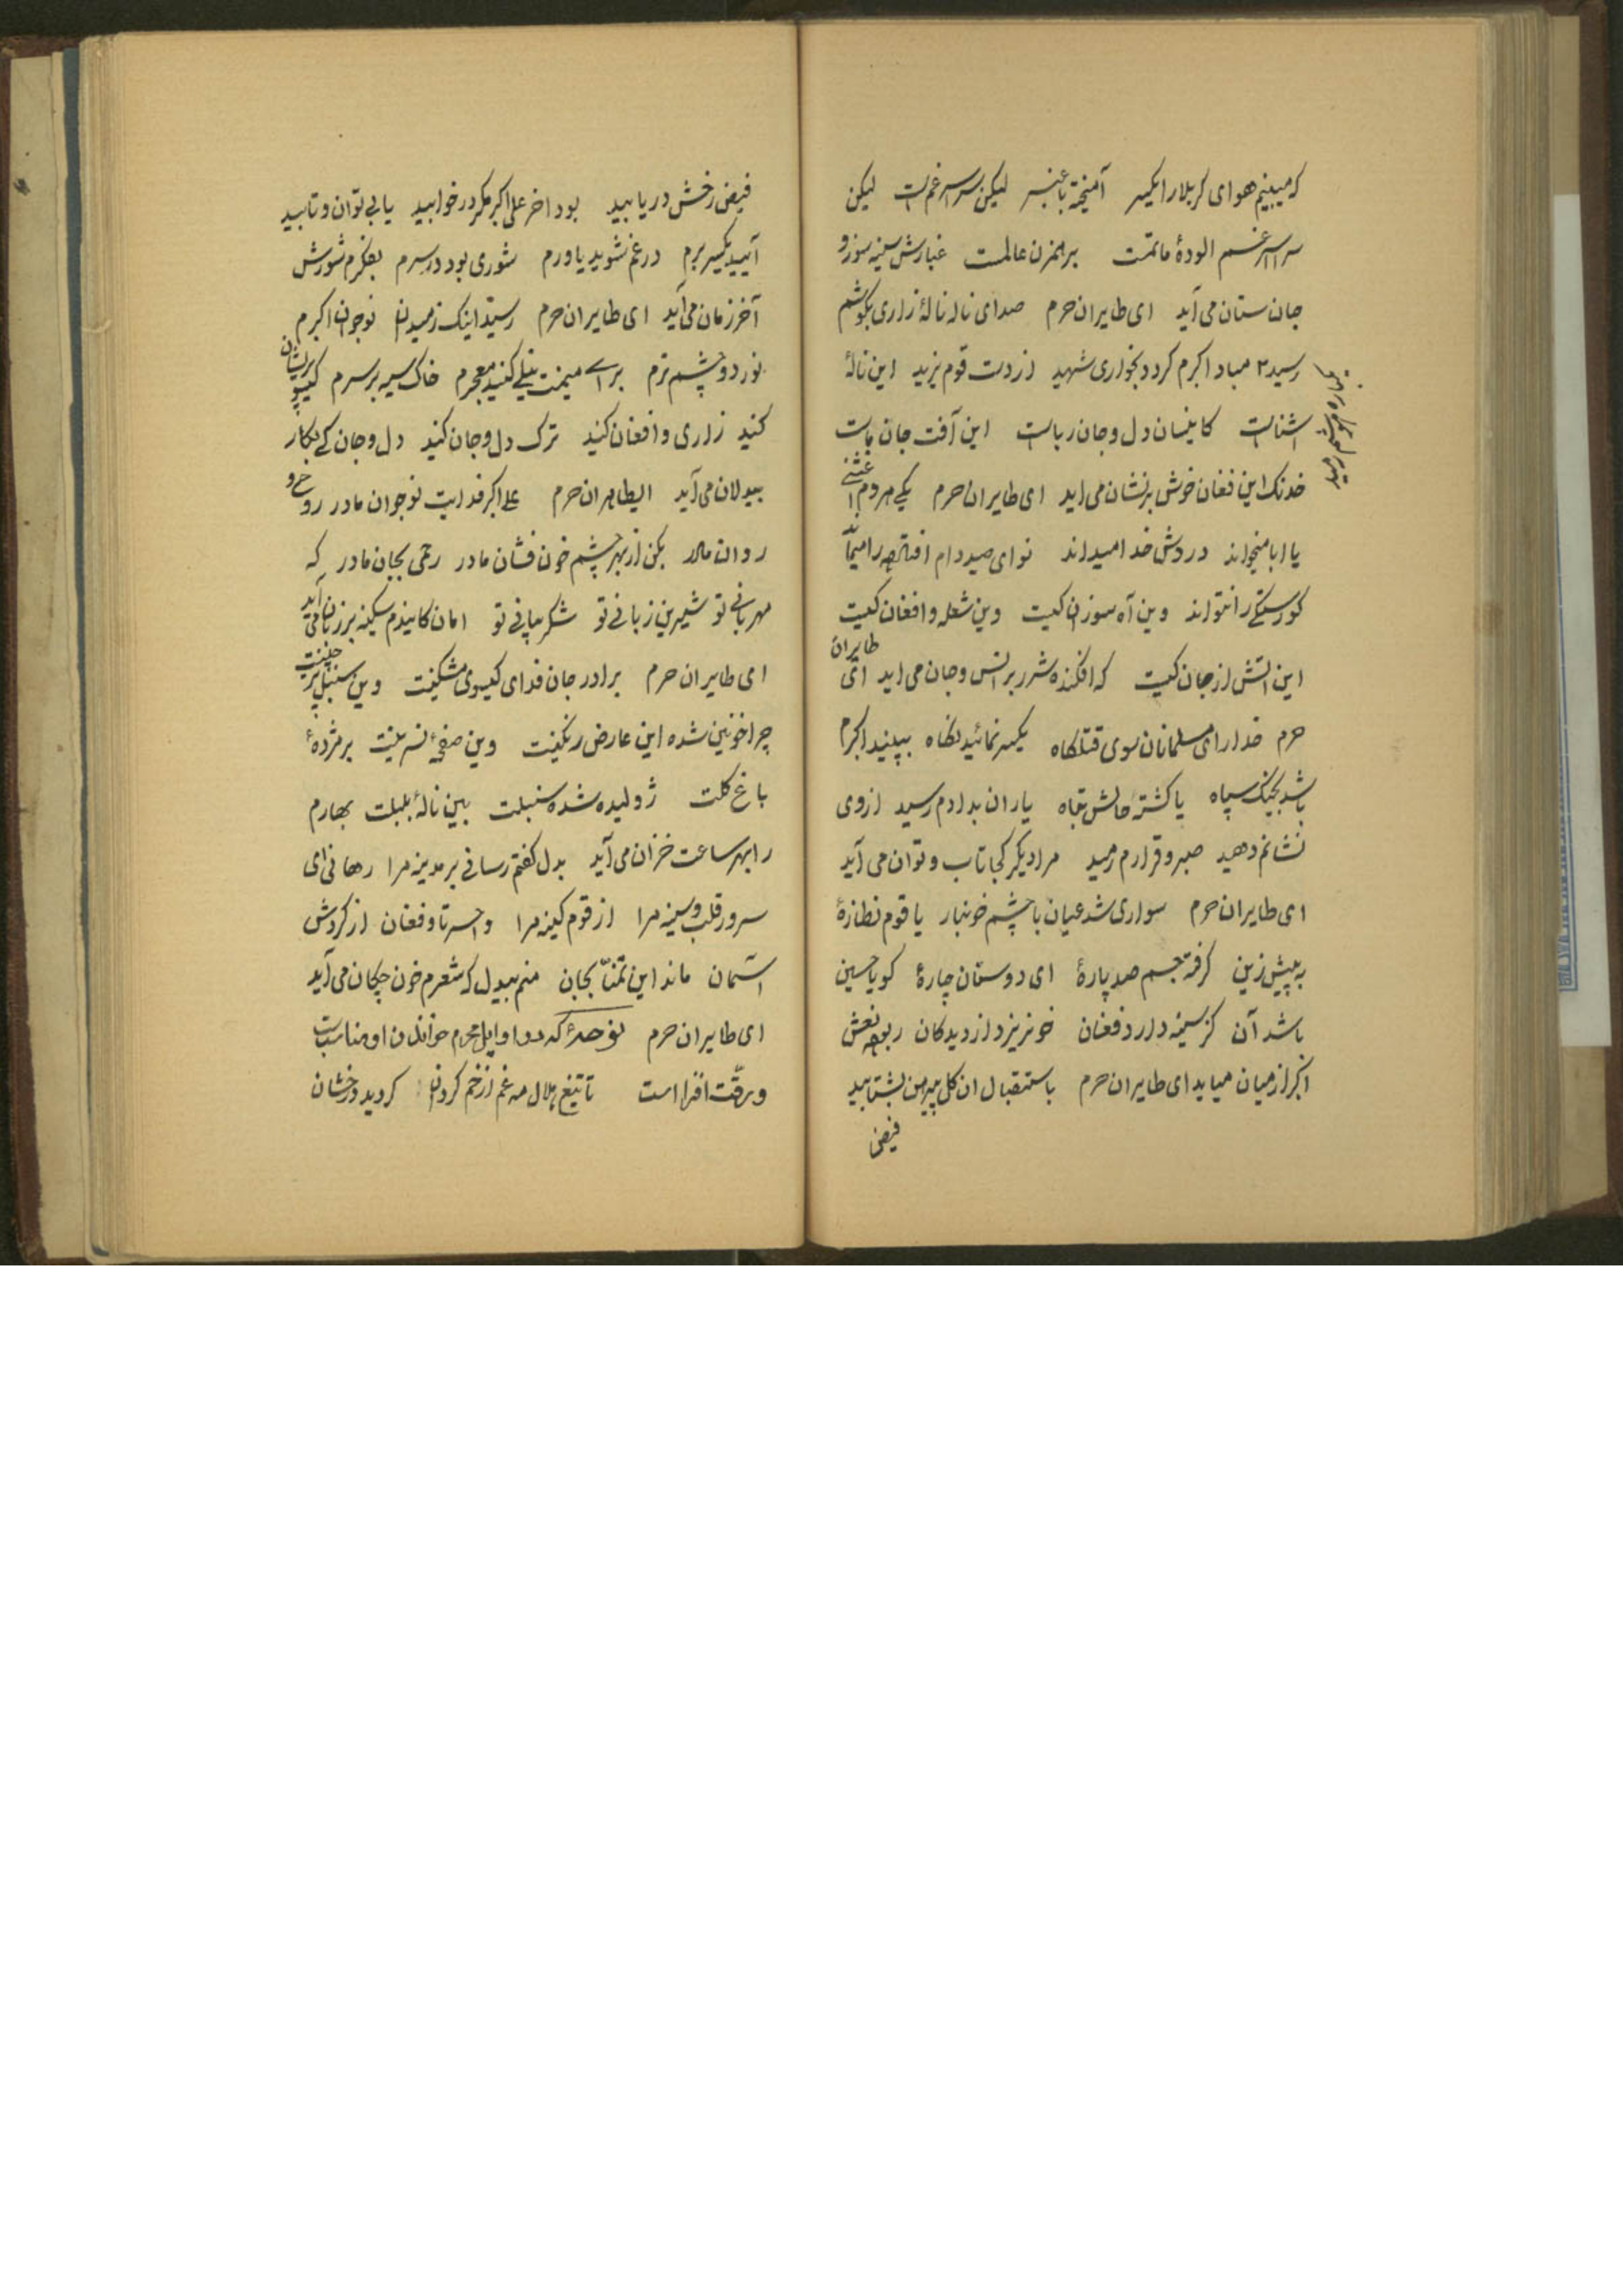 که میبینم هوای کربلا را یکسر آمیخته با عنبر لیکن سراسر غم است لیکن
سراسر غم الودهٔ ماتمت برهمزن عالمت غبارش سینه سوز و
جان ستان می آید ای طایران حرم صدای ناله نالهٔ زاری بگوشم
رسید مباد اکبرم کردد بخواری شهید از دست قوم یزید این نالهٔ
اشناست کاینسان دل و جان رباست این آفت جان ماست
خدنک این فغان خوش بر نشان می اید ای طایران حرم یکی مردم
یا ابا میخواند دردش خدا میداند نوای صید دام افتاده را میماند
کورستکی را نتواند وین آه سوزان کیست وین شعله و افغان کیست
این اتش از جان کیست که افکنده شرر بر انس و جان می اید ای طایران
حرم خدا را ای مسلمانان سوی قتلکاه یکسر نمائید نکاه ببینید اکبرم
باشد بجنک سپاه یا کشته حالش تباه یاران بدادم رسید از وی
نشانم دهید صبر و قرارم رمید مرا دیکر کجا تاب و توان می آید
ای طایران حرم سواری شد عیان با چشم خونبار یا قوم نظارهٔ
به پیش زین کرفته جسم صد پارهٔ ای دوستان چارهٔ کویا حسین
باشد آن کز سینه دارد فغان خونریزد از دیدکان ربوده نعش
اکبر از میان میاید ای طایران حرم باستقبال ان کل پیرهن بشتابید
فیض
فیض رخش دریابید بود اخر علی اکبر مکر در خوابید یا بی توان و تابید
آیید یکسر برم در غم شوید یاورم شوری بود در سرم بفکرم شورش
آخر زمان می آید ای طایران حرم رسید اینک ز میدان نوجوان اکبرم
نور دو چشم ترم برای میمنت نیلی کنید معجرم خاک سیه بر سرم کیسو پریشان
کنید زاری و افغان کنید ترک دل و جان کنید دل و جان کی بکار
بیدلان می آید ای طایران حرم علی اکبر فدایت نوجوان مادر روحی و
روان مادر بکن از بهر چشم خون فشان مادر رحمی بجان مادر که
مهربانی تو شیرین زبانی تو شکر بیانی تو امان کایندم سکینه بر زبان می آید
ای طایران حرم برادر جان فدای کیسوی مشکینت وین سنبل پر چینت
چرا خونین شده این عارض رنکینت وین صفحهٔ نسرینت پژمردهٔ
باغ کلت ژولیده شده سنبلت ببین نالهٔ بلبلت بهارم
را بهر ساعت خزان می آید بدل کفتم رسانی بر مدینه مرا رهانی ای
سرور قلب و سینه مرا از قوم کینه مرا واحسرتا و فغان از کردش
اسمان ماند این تمنا بجان منم بیدل که شعرم خون چکان می آید
ای طایران حرم نوحهٔ که در اوایل محرم خواندن او مناسب
و رقت افزا است تا تیغ هلال مه غم از خم کردون کردید درخشان